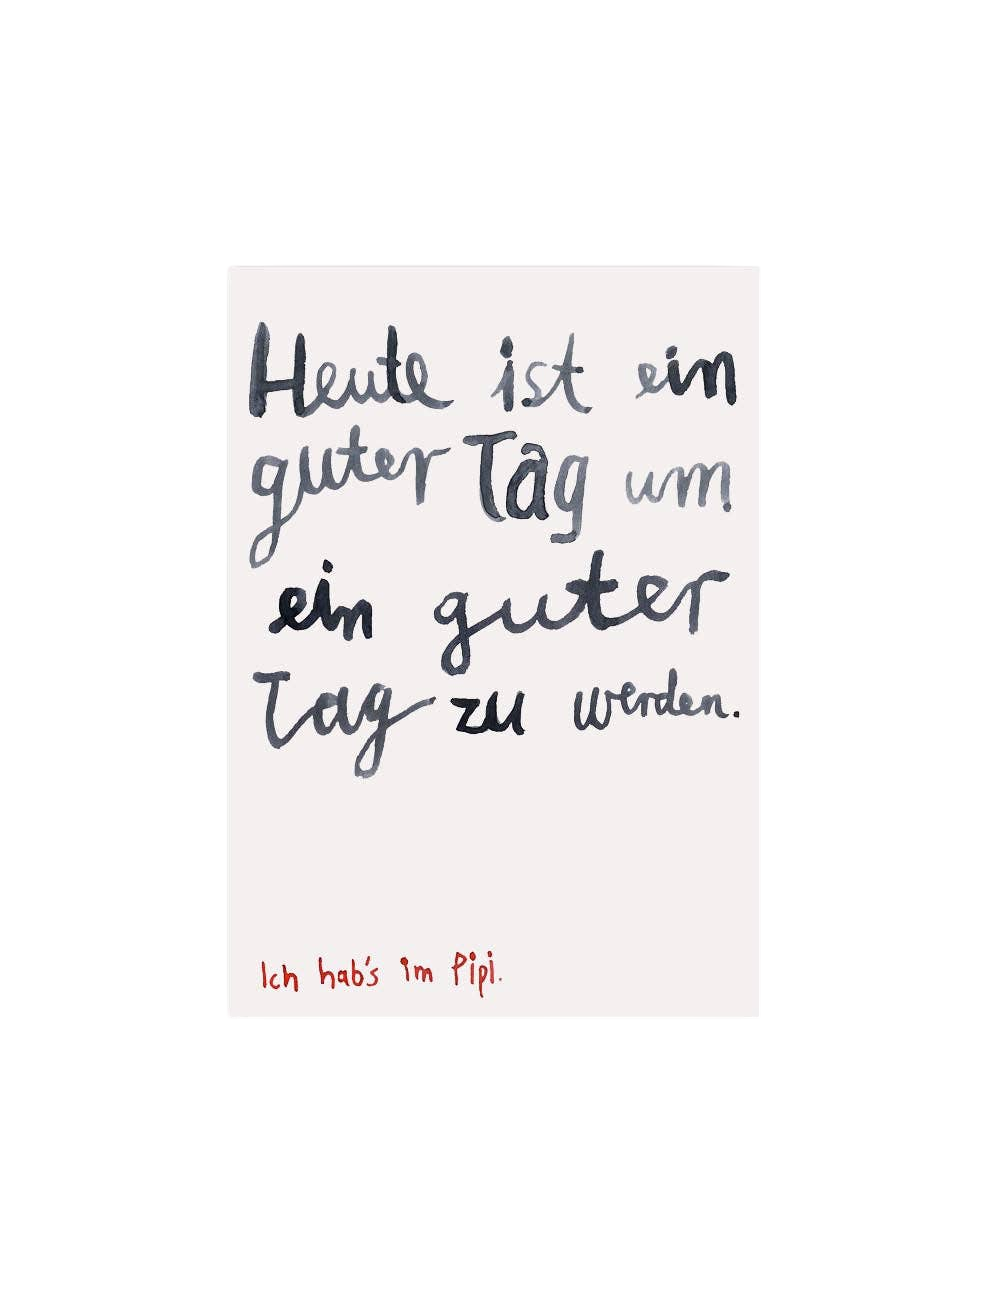 Heute ist ein
guter Tag um
ein guter
Tag zu werden.
Ich hab's im Pipi.